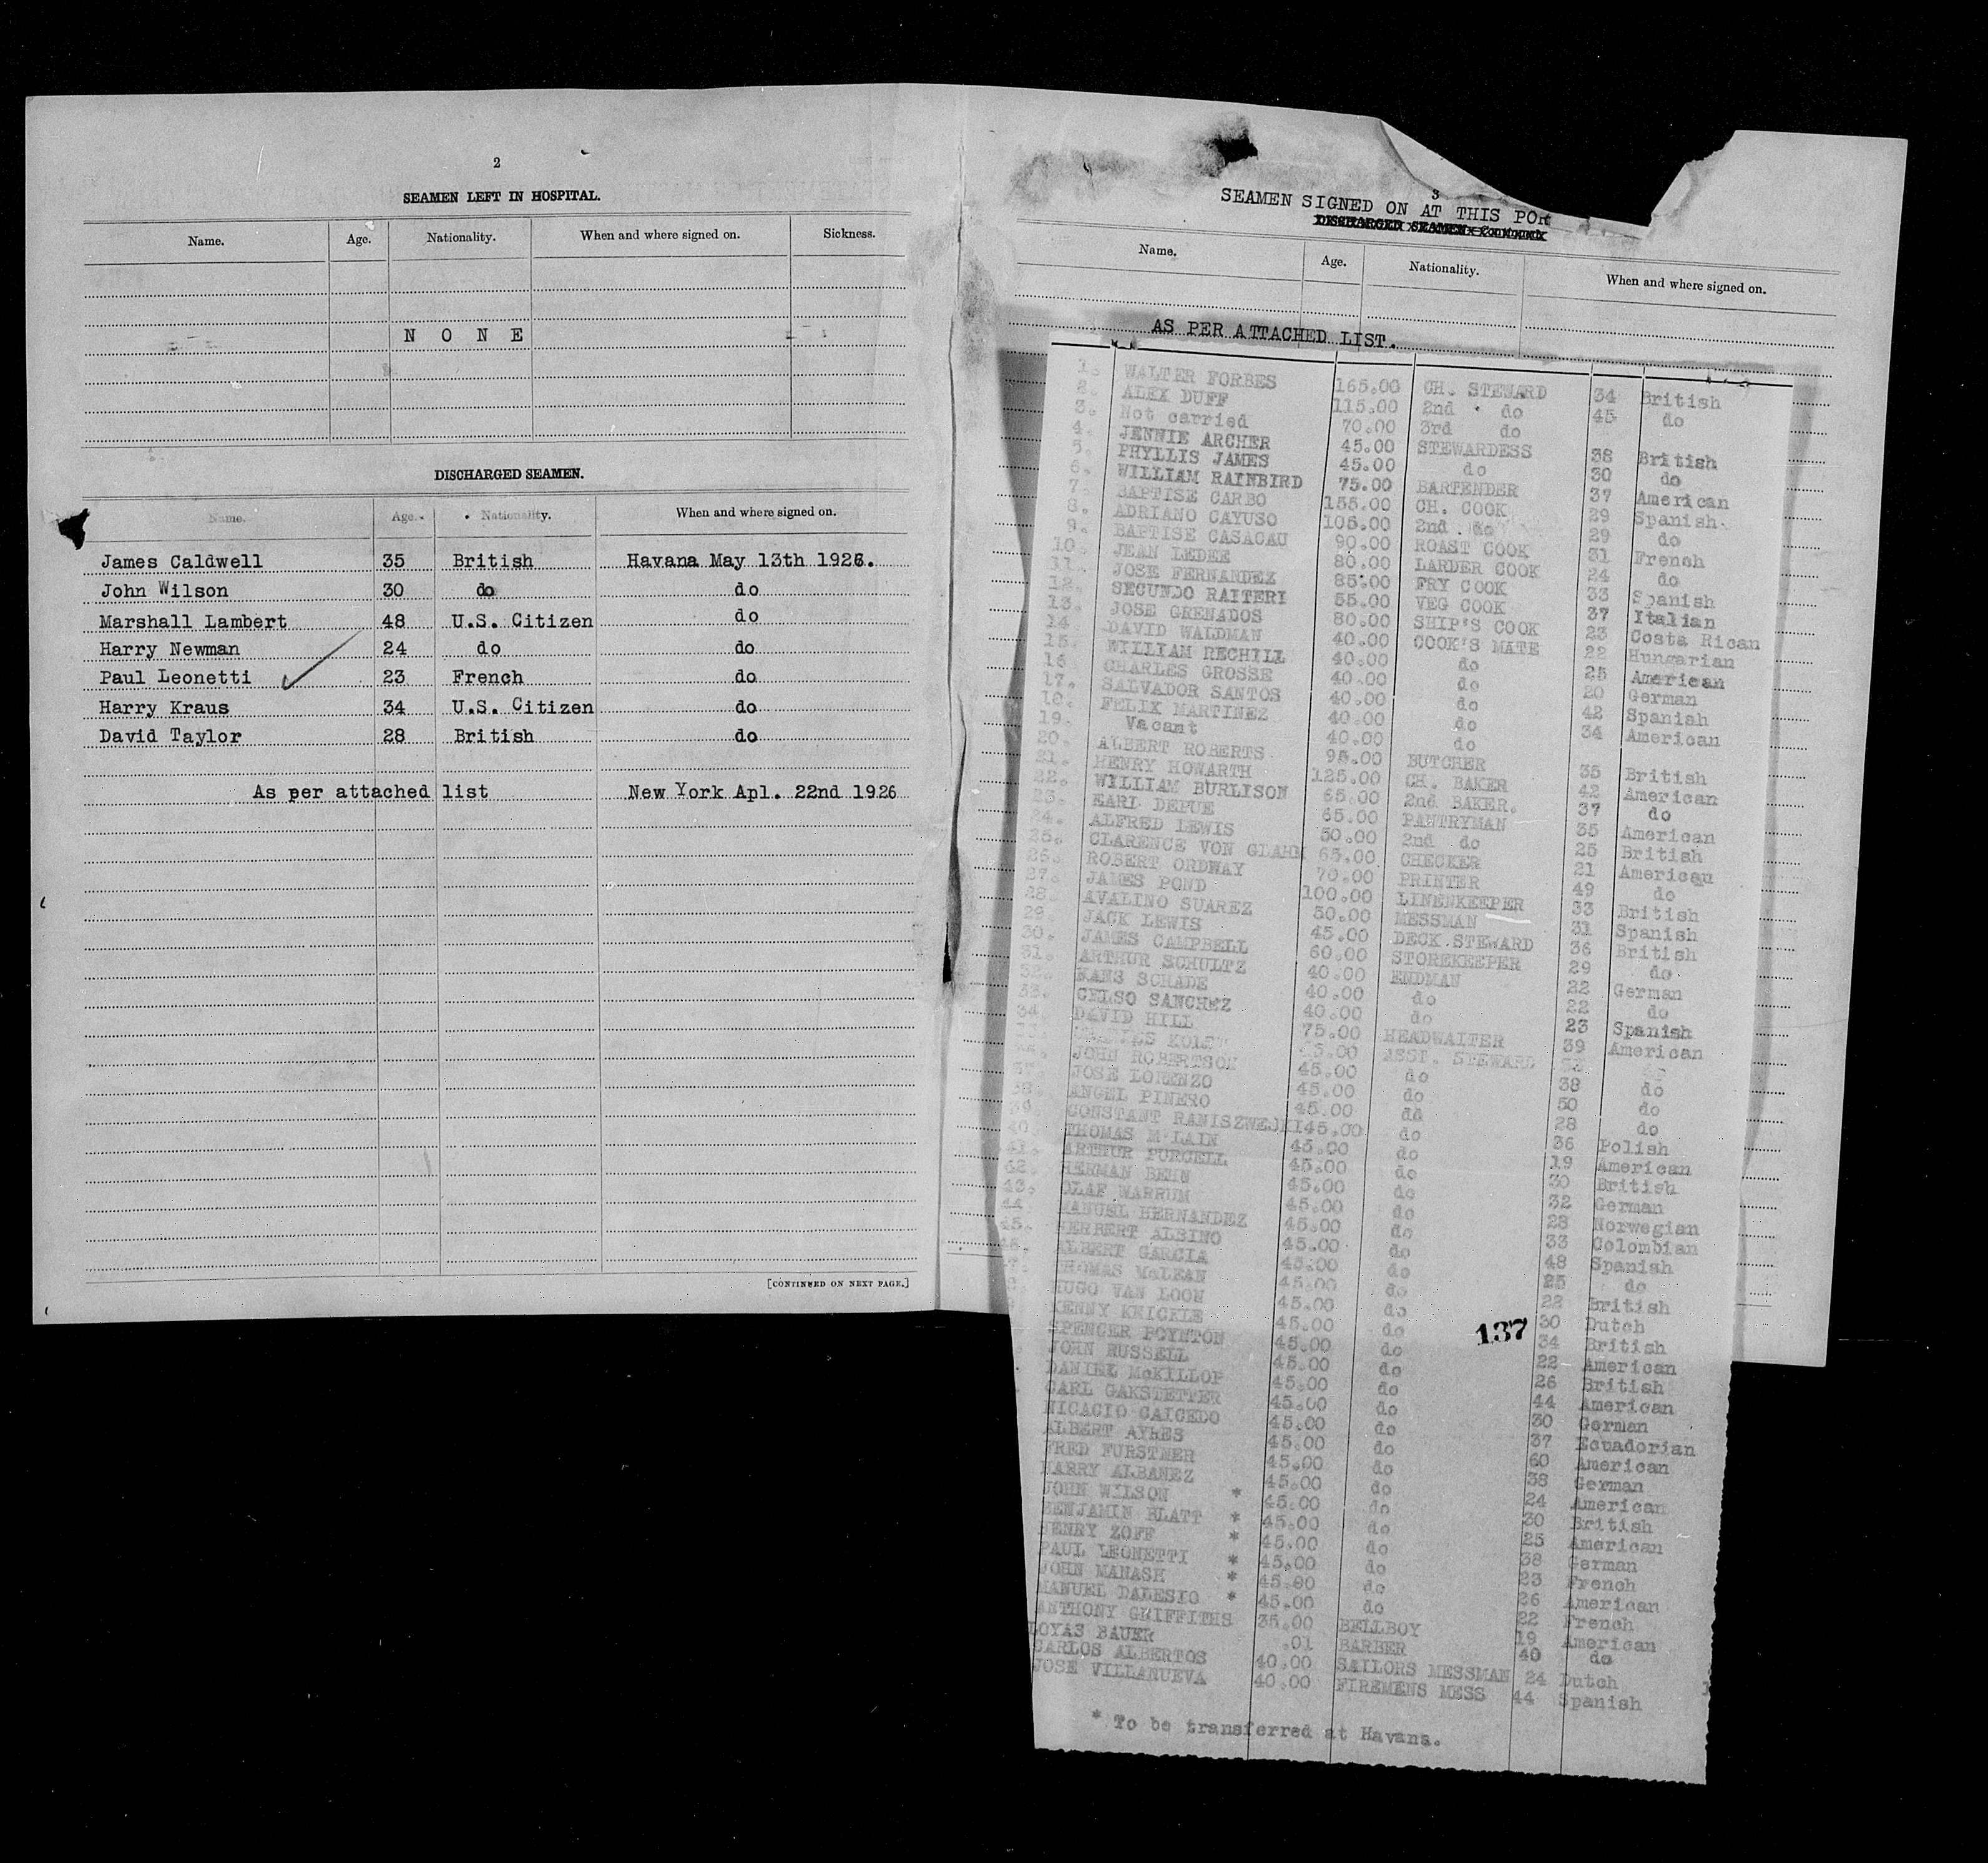 2
SEAMEN LEFT IN HOSPITAL.
Name. Age. Nationality. When and where signed on. Sickness.
N O N E
DISCHARGED SEAMEN.
Name. Age. Nationality. When and where signed on.
James Caldwell 35 British Havana May 13th 1926.
John Wilson 30 do do
Marshall Lambert 48 U.S. Citizen do
Harry Newman 24 do do
Paul Leonetti 23 French do
Harry Kraus 34 U.S. Citizen do
David Taylor 28 British do
As per attached list New York Apl. 22nd 1926
[CONTINUED ON NEXT PAGE.]
3
SEAMEN SIGNED ON AT THIS POR
DISCHARGED SEAMEN—Continued.
Name. Age. Nationality. When and where signed on.
AS PER ATTACHED LIST.
1. WALTER FORBES 165.00 CH. STEWARD 34 British
2. ALEX DUFF 115.00 2nd do 45 do
3. Not carried 70.00 3rd do
4. JENNIE ARCHER 45.00 STEWARDESS 38 British
5. PHYLLIS JAMES 45.00 do 30 do
6. WILLIAM RAINBIRD 75.00 BARTENDER 37 American
7. BAPTISE CARBO 155.00 CH. COOK 29 Spanish.
8. ADRIANO CAYUSO 105.00 2nd do 29 do
9. BAPTISE CASACAU 90.00 ROAST COOK 31 French
10. JEAN LEDEE 80.00 LARDER COOK 24 do
11. JOSE FERNANDEZ 85.00 FRY COOK 33 Spanish
12. SECUNDO RAITERI 55.00 VEG COOK 37 Italian
13. JOSE GRENADOS 80.00 SHIP'S COOK 23 Costa Rican
14 DAVID WALDMAN 40.00 COOK'S MATE 22 Hungarian
15. WILLIAM RECHILL 40.00 do 25 American
16. CHARLES GROSSE 40.00 do 20 German
17. SALVADOR SANTOS 40.00 do 42 Spanish
18. FELIX MARTINEZ 40.00 do 34 American
19. Vacant 40.00 do
20. ALBERT ROBERTS 95.00 BUTCHER 35 British
21. HENRY HOWARTH 125.00 CH. BAKER 42 American
22. WILLIAM BURLISON 65.00 2nd BAKER. 37 do
23. EARL DEPUE 65.00 PANTRYMAN 35 American
24. ALFRED LEWIS 50.00 2nd do 25 British
25. CLARENCE VON GLAHN 65.00 CHECKER 21 American
26. ROBERT ORDWAY 70.00 PRINTER 49 do
27. JAMES POND 100.00 LINENKEEPER 33 British
28. AVALINO SUAREZ 50.00 MESSMAN 31 Spanish
29. JACK LEWIS 45.00 DECK.STEWARD 36 British
30. JAMES CAMPBELL 60.00 STOREKEEPER 29 do
31. ARTHUR SCHULTZ 40.00 ENDMAN 22 German
32. HANS SCHADE 40.00 do 22 do
33. CELSO SANCHEZ 40.00 do 23 Spanish
34. DAVID HILL 75.00 HEADWAITER 39 American
ASST. STEWARD
JOHN ROBERTSON 45.00 do 38 do
37. JOSE LORENZO 45.00 do 50 do
38. ANGEL PINERO 45.00 dd 28 do
39. CONSTANT RANISZWEJKI 45.00 do 36 Polish
40. THOMAS McLAIN 45.00 do 19 American
41. ARTHUR PURCELL 45.00 do 30 British
42. HERMAN BEHN 45.00 do 32 German
43. OLAF WARRUM 45.00 do 28 Norwegian
44. MANUEL HERNANDEZ 45.00 do 33 Colombian
45. HERBERT ALBINO 45.00 do 48 Spanish
46. ALBERT GARCIA 45.00 do 25 do
THOMAS McLEAN 45.00 do 22 British
HUGO VAN LOON 45.00 do 30 Dutch
KENNY KNICKLE 45.00 do 34 British
SPENCER POYNTON 45.00 do 22 American
JOHN RUSSELL 45.00 do 26 British
DANIEL McKILLOP 45.00 do 44 American
CARL GAKSTETTER 45.00 do 30 German
NICACIO CAICEDO 45.00 do 37 Ecuadorian
ALBERT AYRES 45.00 do 60 American
FRED FURSTNER 45.00 do 38 German
HARRY ALBANEZ 45.00 do 24 American
JOHN WILSON * 45.00 do 30 British
BENJAMIN BLATT * 45.00 do 25 American
HENRY ZOFF * 45.00 do 38 German
PAUL LEONETTI * 45.00 do 23 French
JOHN MANASH * 45.00 do 26 American
MANUEL DALESIO * 45.00 do 22 French
ANTHONY GRIFFITHS 35.00 BELLBOY 19 American
LOYAS BAUER .01 BARBER 40 do
CARLOS ALBERTOS 40.00 SAILORS MESSMAN 24 Dutch
JOSE VILLANUEVA 40.00 FIREMENS MESS 44 Spanish
* To be transferred at Havana.
137